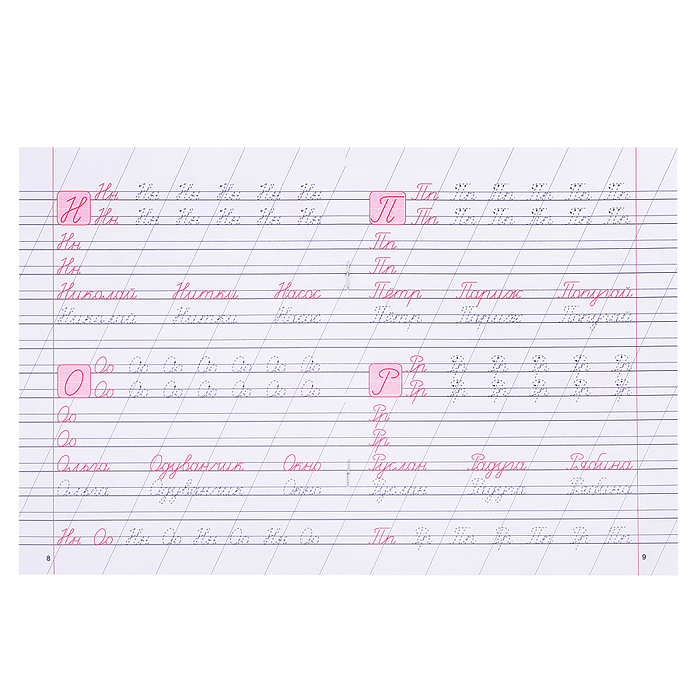 Н Нн Нн Нн Нн Нн Нн
Нн Нн Нн Нн Нн Нн
Нн
Нн
Николай Нитки Насос
Николай Нитки Насос
О Оо Оо Оо Оо Оо Оо Оо
Оо Оо Оо Оо Оо Оо Оо
Оо
Оо
Ольга Одуванчик Окно
Ольга Одуванчик Окно
Нн Оо Нн Оо Нн Оо Нн Оо
8
П Пп Пп Пп Пп Пп Пп
Пп Пп Пп Пп Пп Пп
Пп
Пп
Пётр Париж Попугай
Пётр Париж Попугай
Р Рр Рр Рр Рр Рр Рр
Рр Рр Рр Рр Рр Рр
Рр
Рр
Руслан Радуга Рябина
Руслан Радуга Рябина
Пп Рр Пп Рр Пп Рр Пп
9